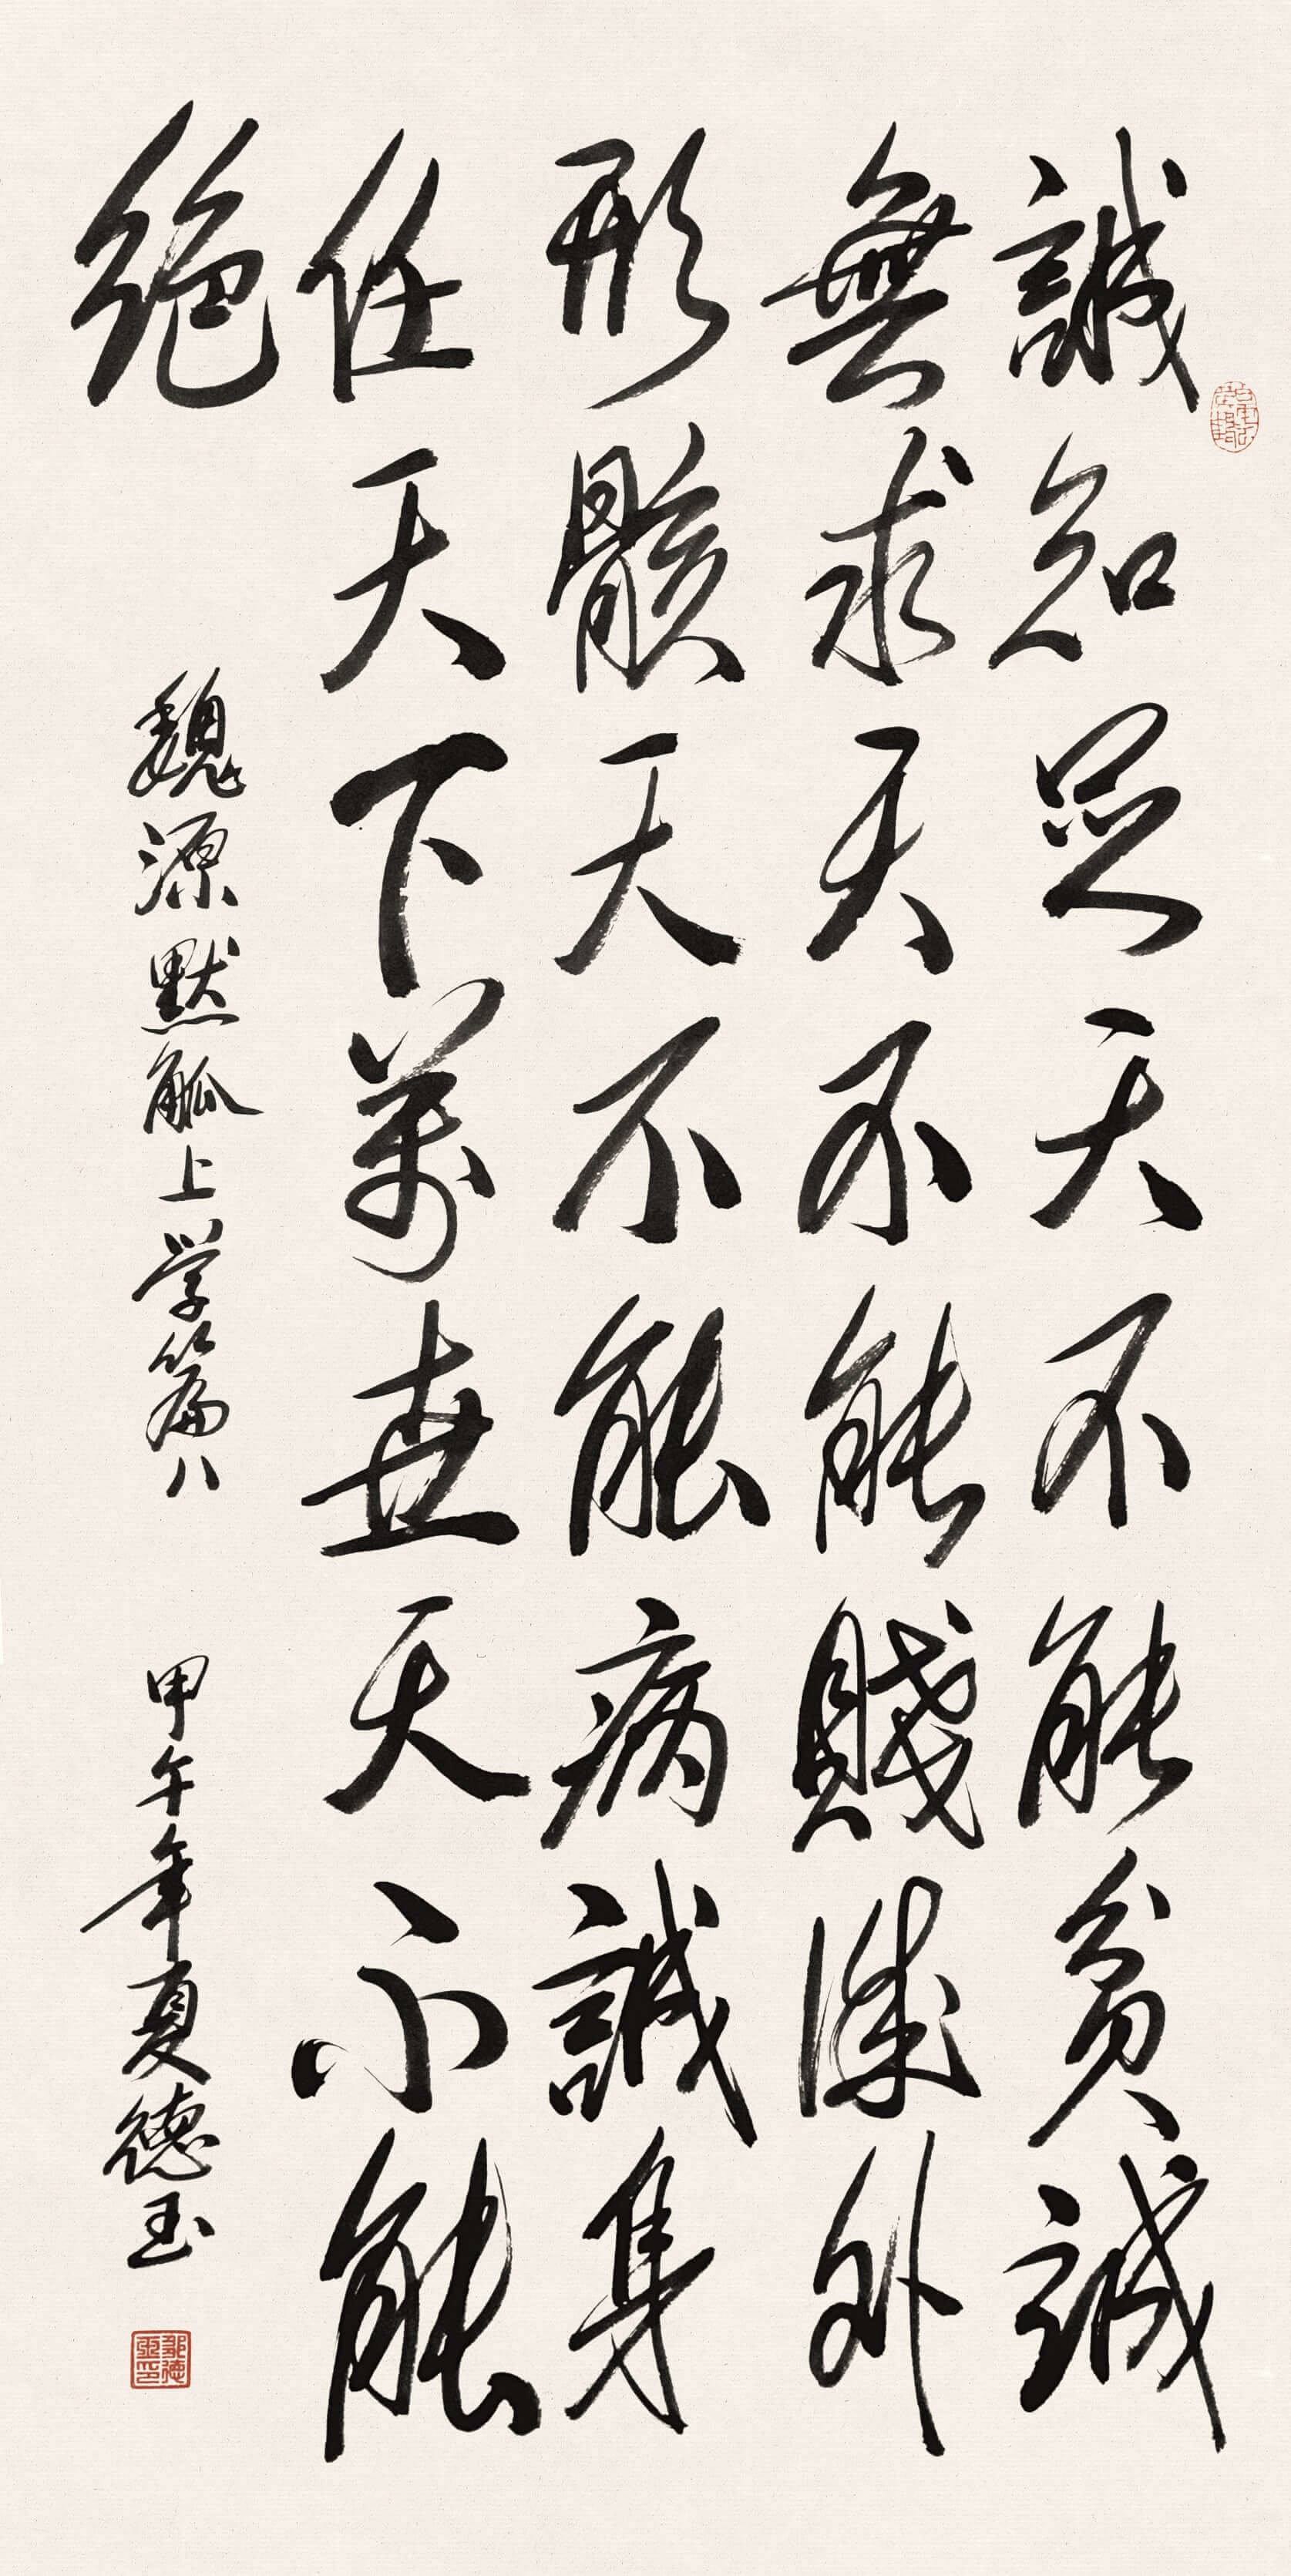 誠知足天不能貧誠
無求天不能賤誠外
形骸天不能病誠身
任天下萬世天不能
絕
魏源默觚上学篇八
甲午年夏德玉
鄒德玉印